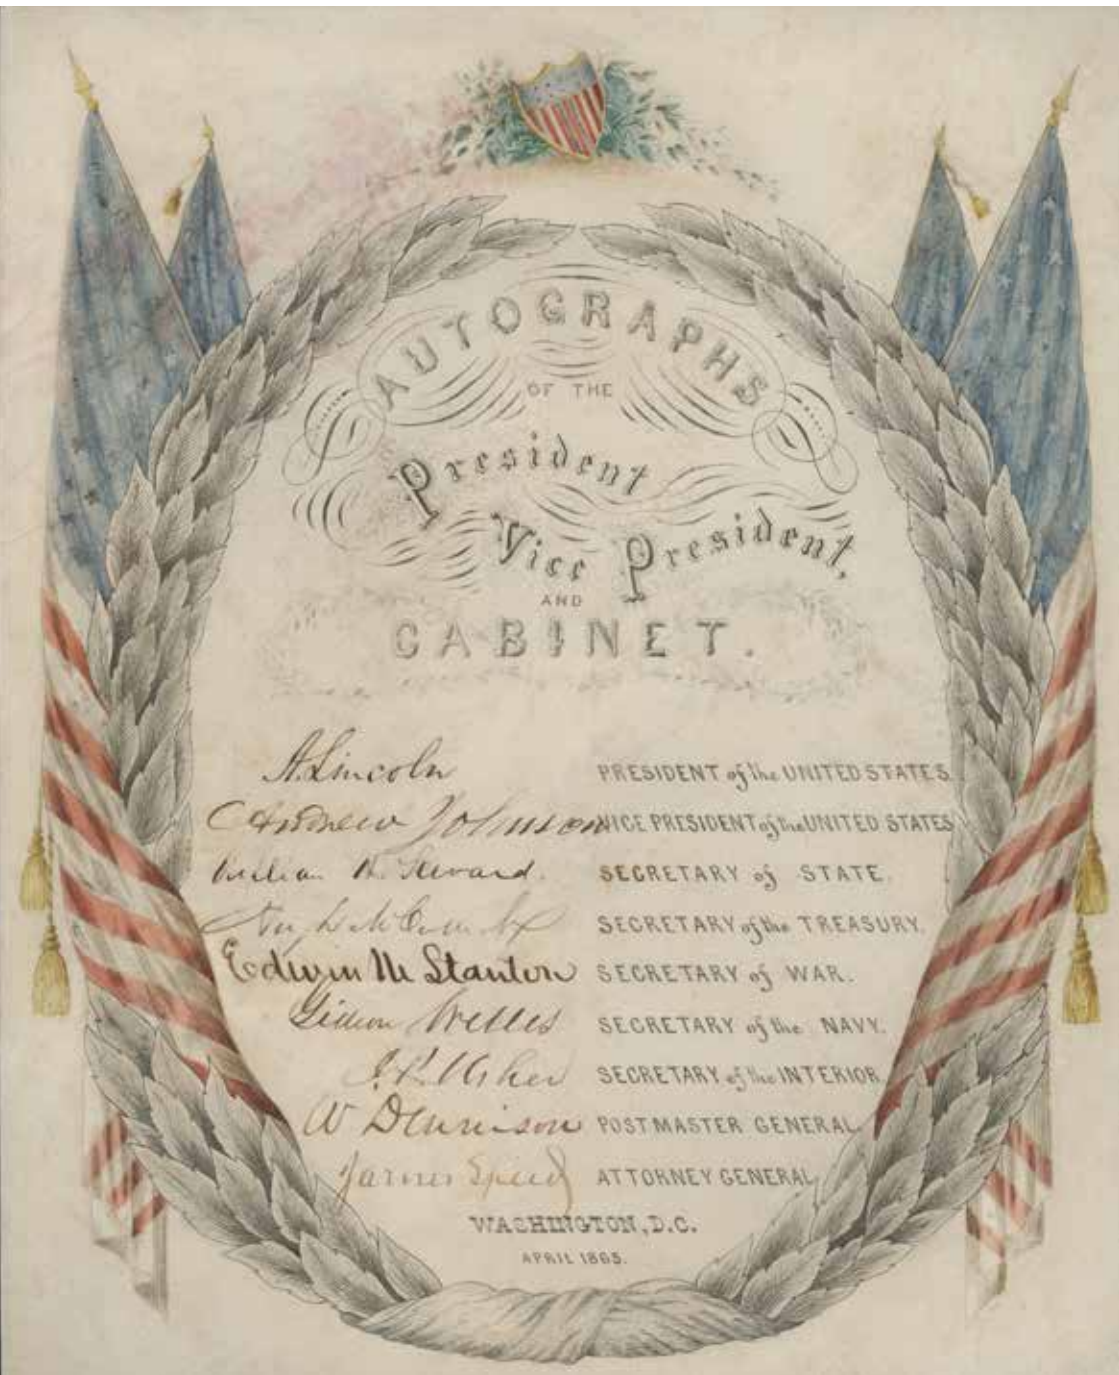 AUTOGRAPHS
OF THE
President
Vice President,
AND
CABINET.
A. Lincoln PRESIDENT of the UNITED STATES.
Andrew Johnson VICE PRESIDENT of the UNITED STATES
William H. Seward. SECRETARY of STATE.
SECRETARY of the TREASURY.
Edwin M Stanton SECRETARY of WAR.
Gideon Welles SECRETARY of the NAVY.
J. P. Usher SECRETARY of the INTERIOR.
W Dennison POSTMASTER GENERAL.
James Speed ATTORNEY GENERAL,
WASHINGTON, D.C.
APRIL 1865.